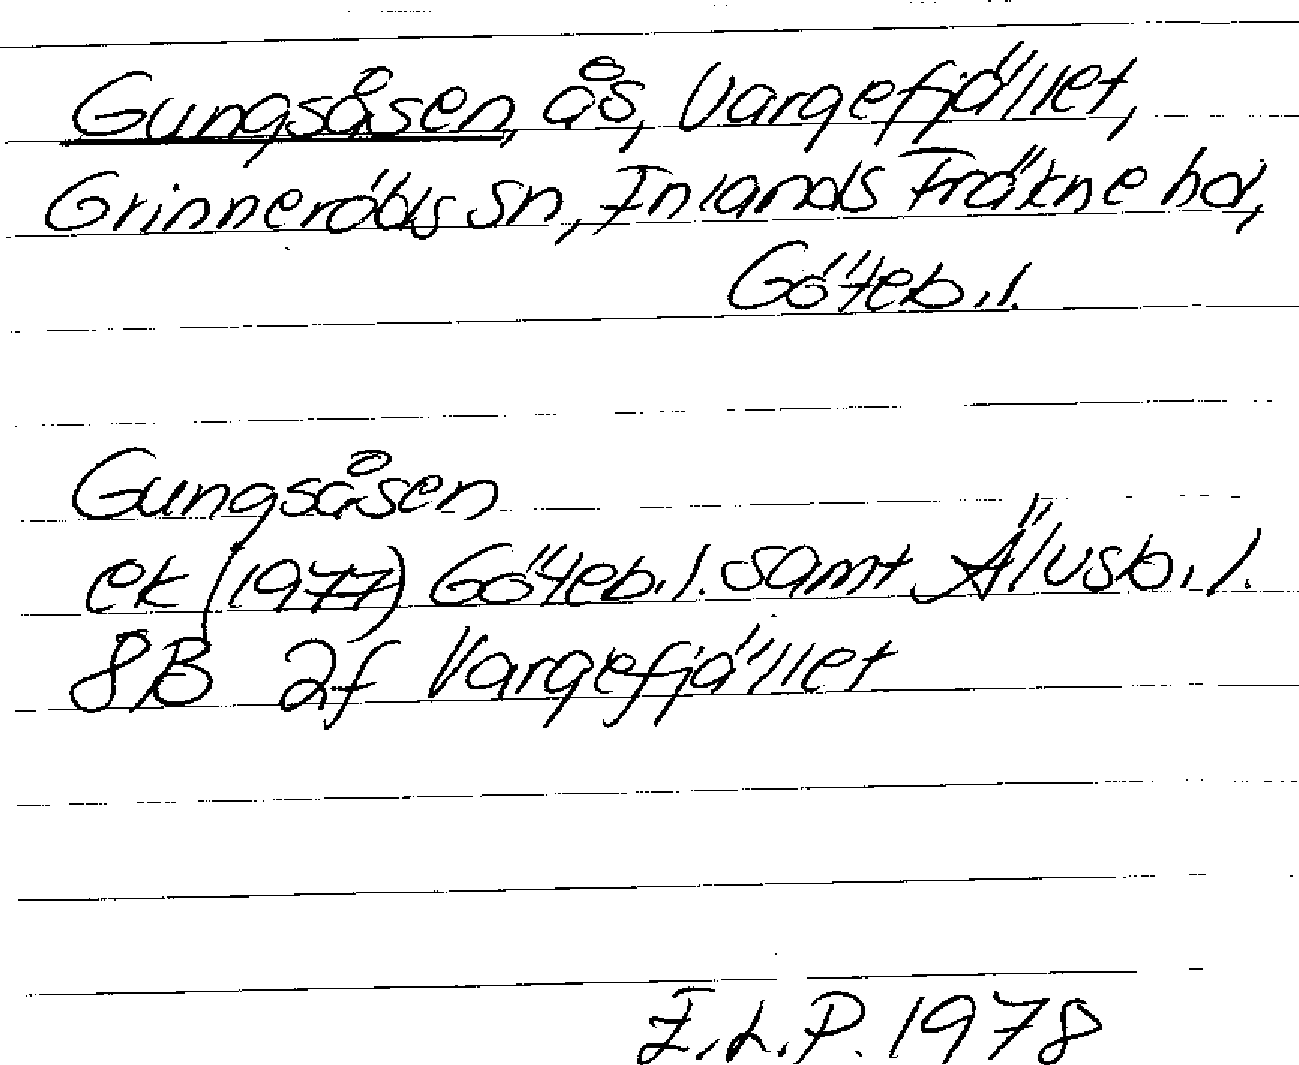 Gungsåsen, ås, Vargefjället,
Grinneröds sn, Inlands Fräkne hd,
Göteb.l.
Gungsåsen
ek (1977) Göteb.l. samt Älvsb.l.
8B 2f Vargefjället
I.L.P. 1978